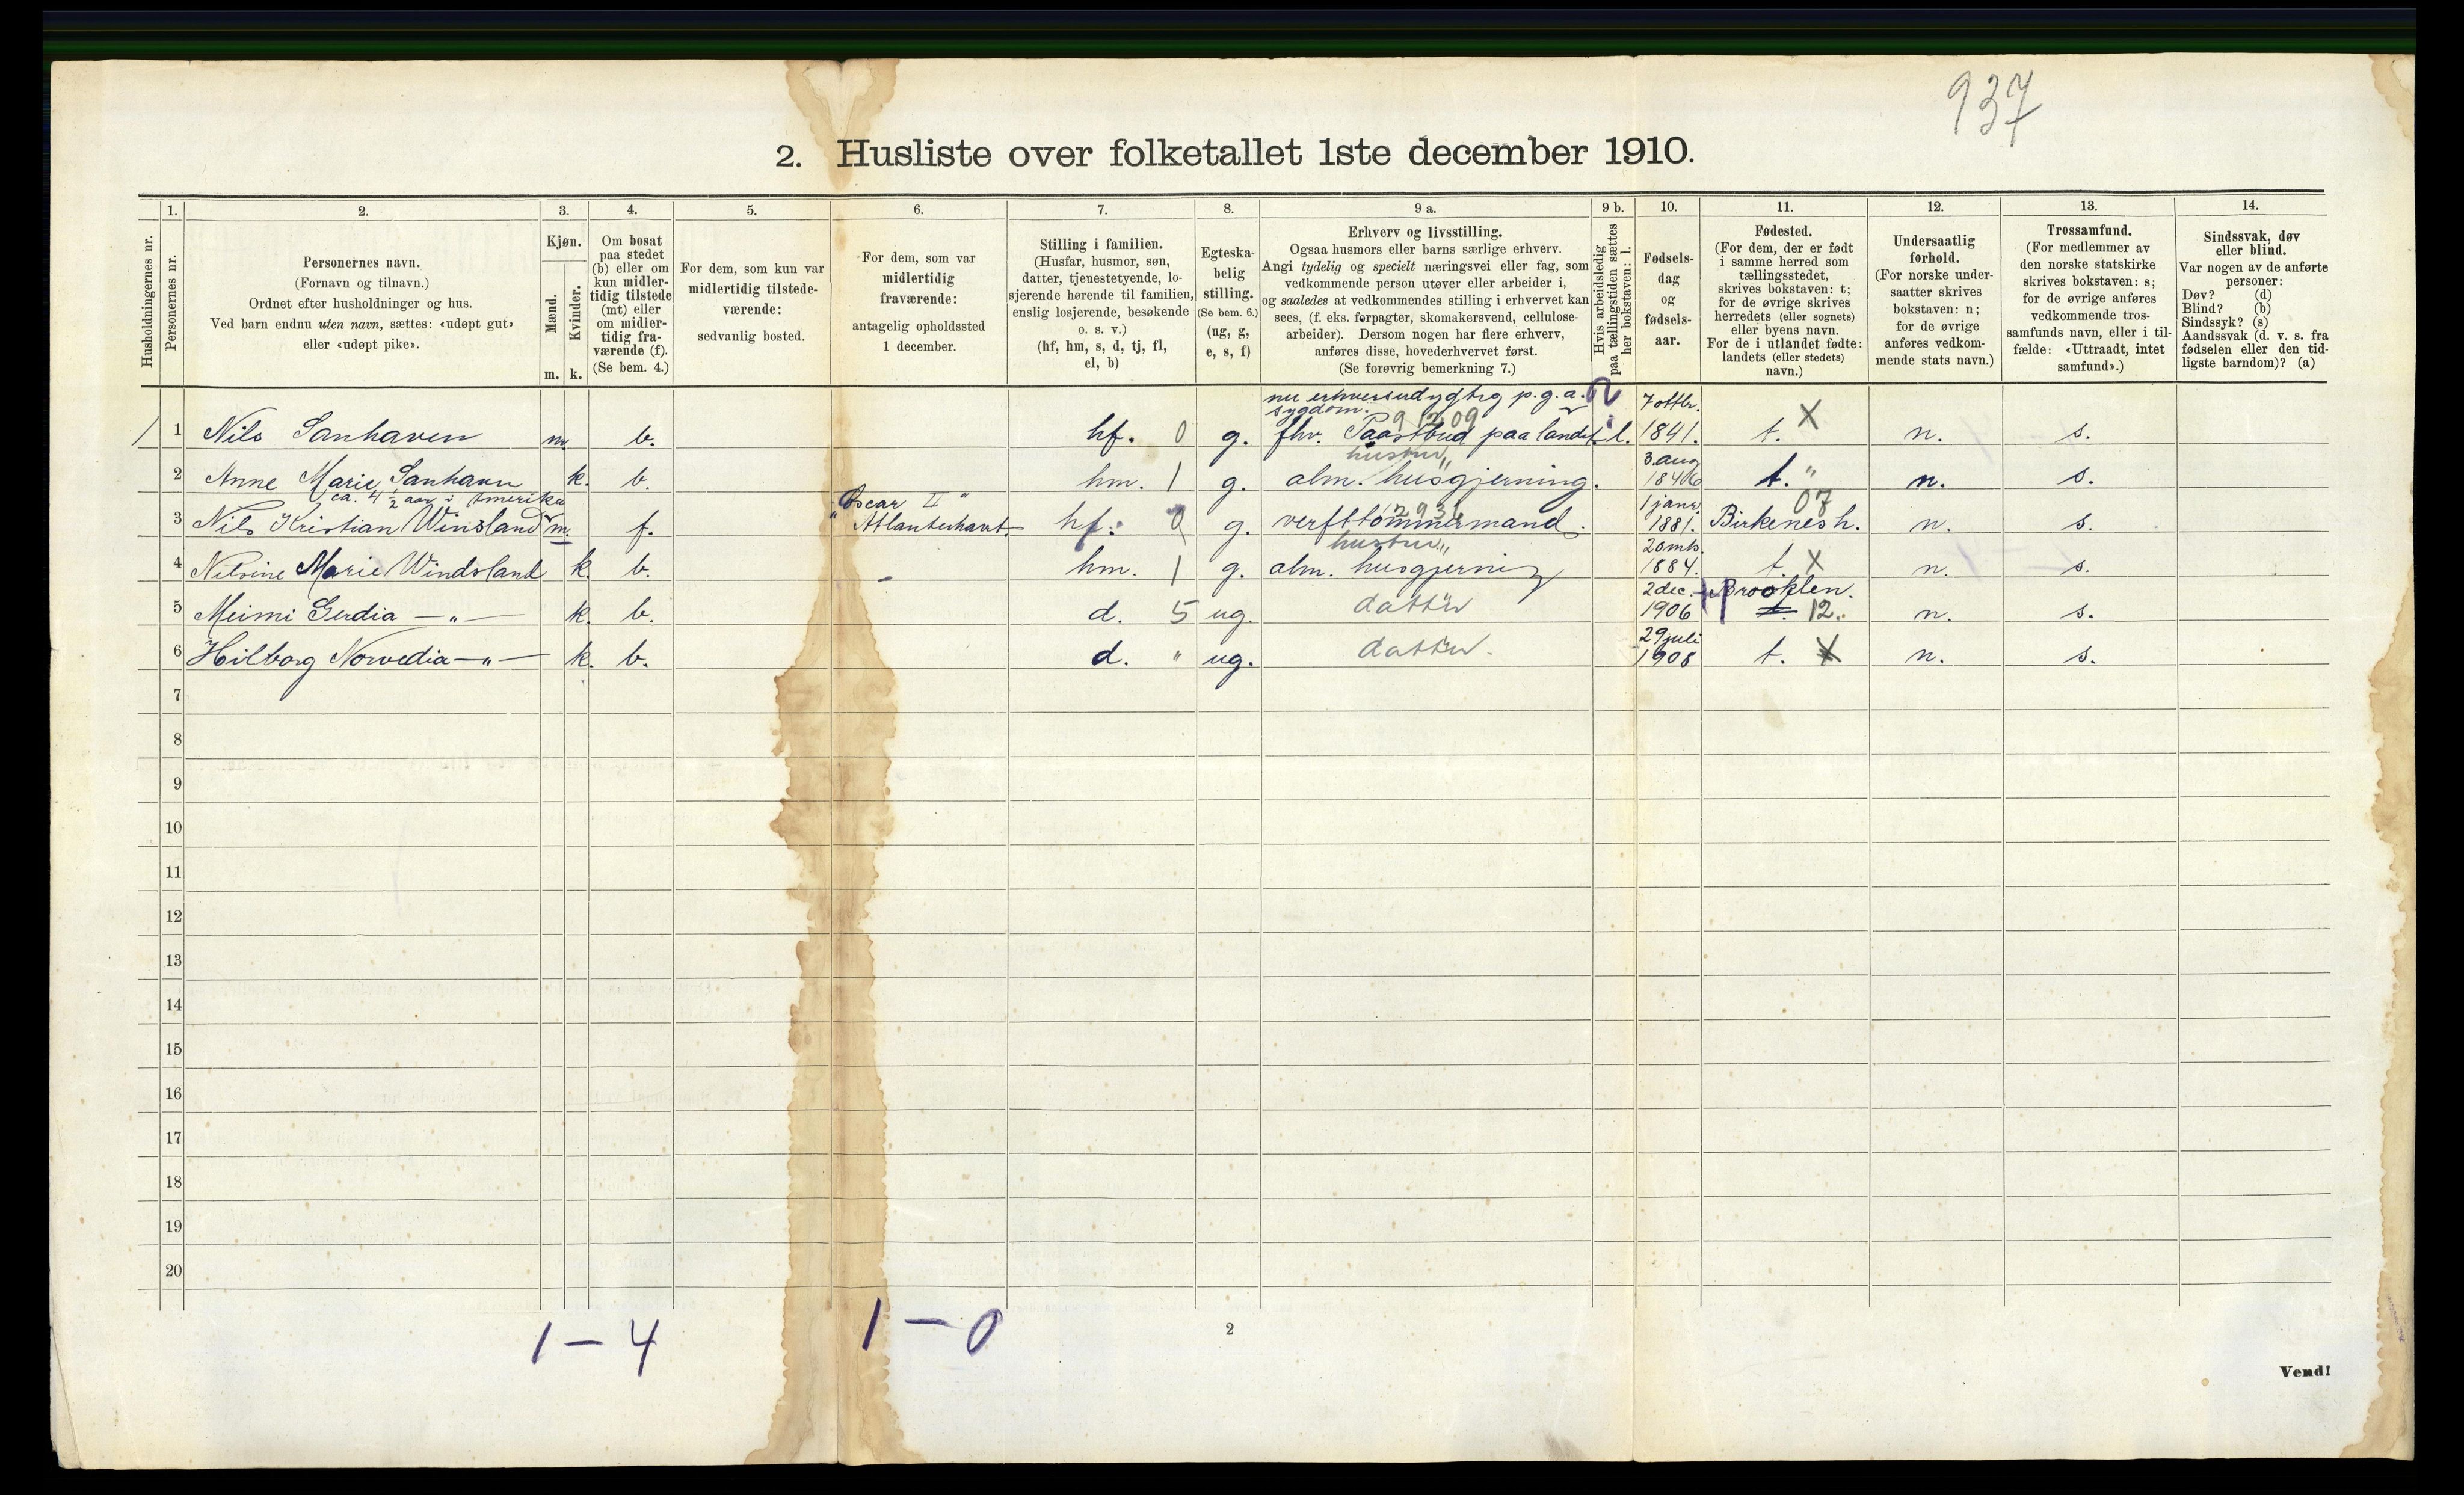 937
2. Husliste over folketallet 1ste december 1910.
Husholdningernes nr.
1.
Personernes nr.
2.
Personernes navn.
(Fornavn og tilnavn.)
Ordnet efter husholdninger og hus.
Ved barn endnu uten navn, sættes: «udøpt gut»
eller «udøpt pike».
3.
Kjøn.
Mænd.
Kvinder.
m. k.
4.
Om bosat
paa stedet
(b) eller om
kun midler-
tidig tilstede
(mt) eller
om midler-
tidig fra-
værende (f).
(Se bem. 4.)
5.
For dem, som kun var
midlertidig tilstede-
værende:
sedvanlig bosted.
6.
For dem, som var
midlertidig
fraværende:
antagelig opholdssted
1 december.
7.
Stilling i familien.
(Husfar, husmor, søn,
datter, tjenestetyende, lo-
sjerende hørende til familien,
enslig losjerende, besøkende
o. s. v.)
(hf, hm, s, d, tj, fl,
el, b)
8.
Egteska-
belig
stilling.
(Se bem. 6.)
(ug, g,
e, s, f)
9 a.
Erhverv og livsstilling.
Ogsaa husmors eller barns særlige erhverv.
Angi tydelig og specielt næringsvei eller fag, som
vedkommende person utøver eller arbeider i,
og saaledes at vedkommendes stilling i erhvervet kan
sees, (f. eks. forpagter, skomakersvend, cellulose-
arbeider). Dersom nogen har flere erhverv,
anføres disse, hovederhvervet først.
(Se forøvrig bemerkning 7.)
9 b.
Hvis arbeidsledig
paa tællingstiden sættes
her bokstaven: l.
10.
Fødsels-
dag
og
fødsels-
aar.
11.
Fødested.
(For dem, der er født
i samme herred som
tællingsstedet,
skrives bokstaven: t;
for de øvrige skrives
herredets (eller sognets)
eller byens navn.
For de i utlandet fødte:
landets (eller stedets)
navn.)
12.
Undersaatlig
forhold.
(For norske under-
saatter skrives
bokstaven: n;
for de øvrige
anføres vedkom-
mende stats navn.)
13.
Trossamfund.
(For medlemmer av
den norske statskirke
skrives bokstaven: s;
for de øvrige anføres
vedkommende tros-
samfunds navn, eller i til-
fælde: «Uttraadt, intet
samfund».)
14.
Sindssvak, døv
eller blind.
Var nogen av de anførte
personer:
Døv? (d)
Blind? (b)
Sindssyk? (s)
Aandssvak (d. v. s. fra
fødselen eller den tid-
ligste barndom)? (a)
nu p.g.a.
sygdom. 9 12 09 7 oktbr.
1 1 Nils Sanhaven m. b. hf. 0 g. fhv. paa landet l. 1841. t. X n. s.
hustru 3. aug
2 Anne Marie Sanhavn k. b. hm. 1 g. alm. husgjerning. 1846 t. " n. s.
ca. 4 1/2 aar i Amerika "Oscar II" 2931 1 janr. 07
3 Nils Kristian Winsland m. f. Atlanterhavet hf. 0 g. verfttømmermand. 1881. Birkenes h. n. s.
hustru 20 mts.
4 Nilsine Marie Windsland k. b. - hm. 1 g. alm. husgjerning 1884. t. X n. s.
2 dec. Brooklen.
5 Meimi Gerdia —"— k. b. d. 5 ug. datter 1906 t. 12. n. s.
29 juli
6 Hilborg Norvedia —"— k. b. d. " ug. datter. 1908 t. X n. s.
7
8
9
10
11
12
13
14
15
16
17
18
19
20
1 — 4 1 — 0
2
Vend!